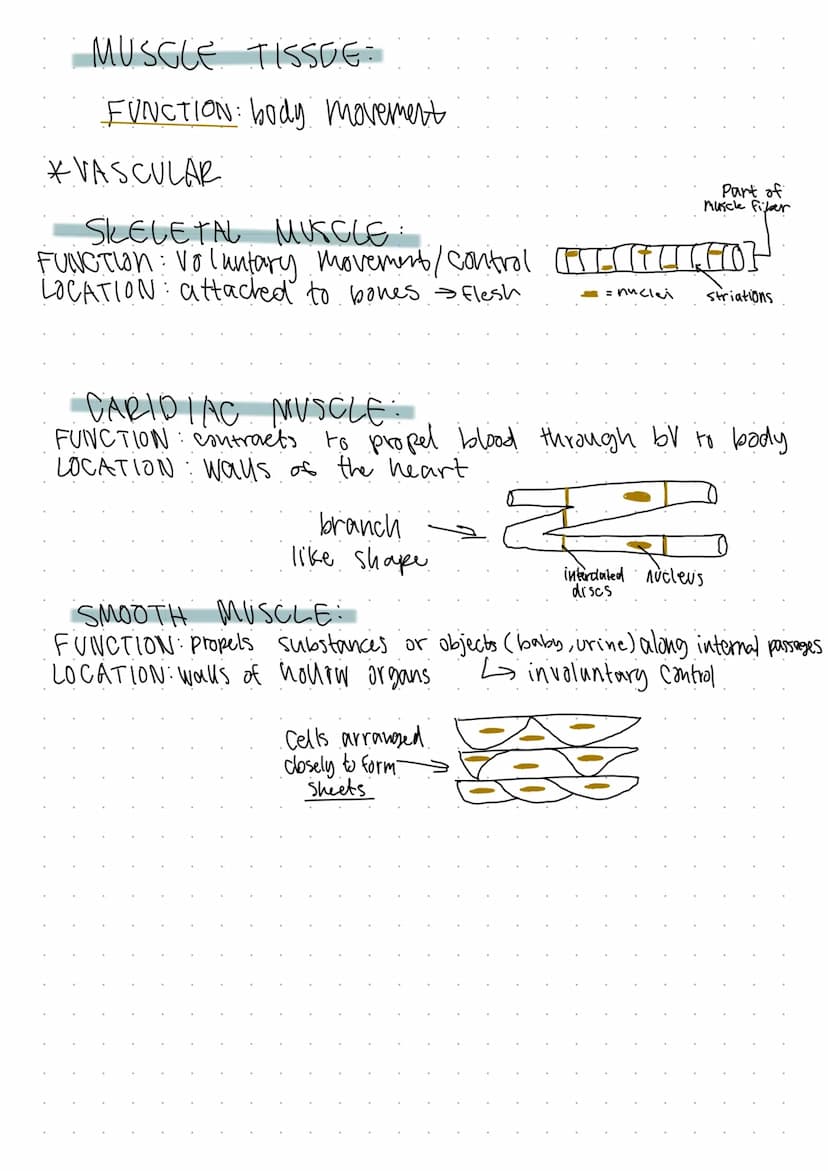 MUSCLE TISSUE:
FUNCTION: body movement
*VASCULAR
SKELETAL MUSCLE:
FUNCTION: Voluntary movement/control
LOCATION: attached to bones → Flesh
Part of
muscle fiber
= nuclei
striations
CARIDIAC MUSCLE:
FUNCTION: contracts to propel blood through bV to body
LOCATION: walls of the heart
branch
like shape
intercalated
discs
nucleus
SMOOTH MUSCLE:
FUNCTION: Propels substances or objects (baby, urine) along internal passages
LOCATION: walls of hollow organs ↳ involuntary control
Cells arranged
closely to form
sheets